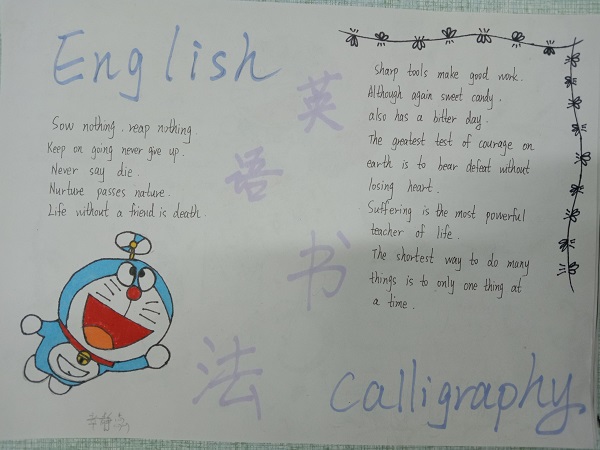 English
Sow nothing, reap nothing.
Keep on going never give up.
Never say die.
Nurture passes nature.
Life without a friend is death.
英
语
书
法
sharp tools make good work.
Although again sweet candy.
also has a bitter day.
The greatest test of courage on
earth is to bear defeat without
losing heart.
Suffering is the most powerful
teacher of life.
The shortest way to do many
things is to only one thing at
a time.
Calligraphy